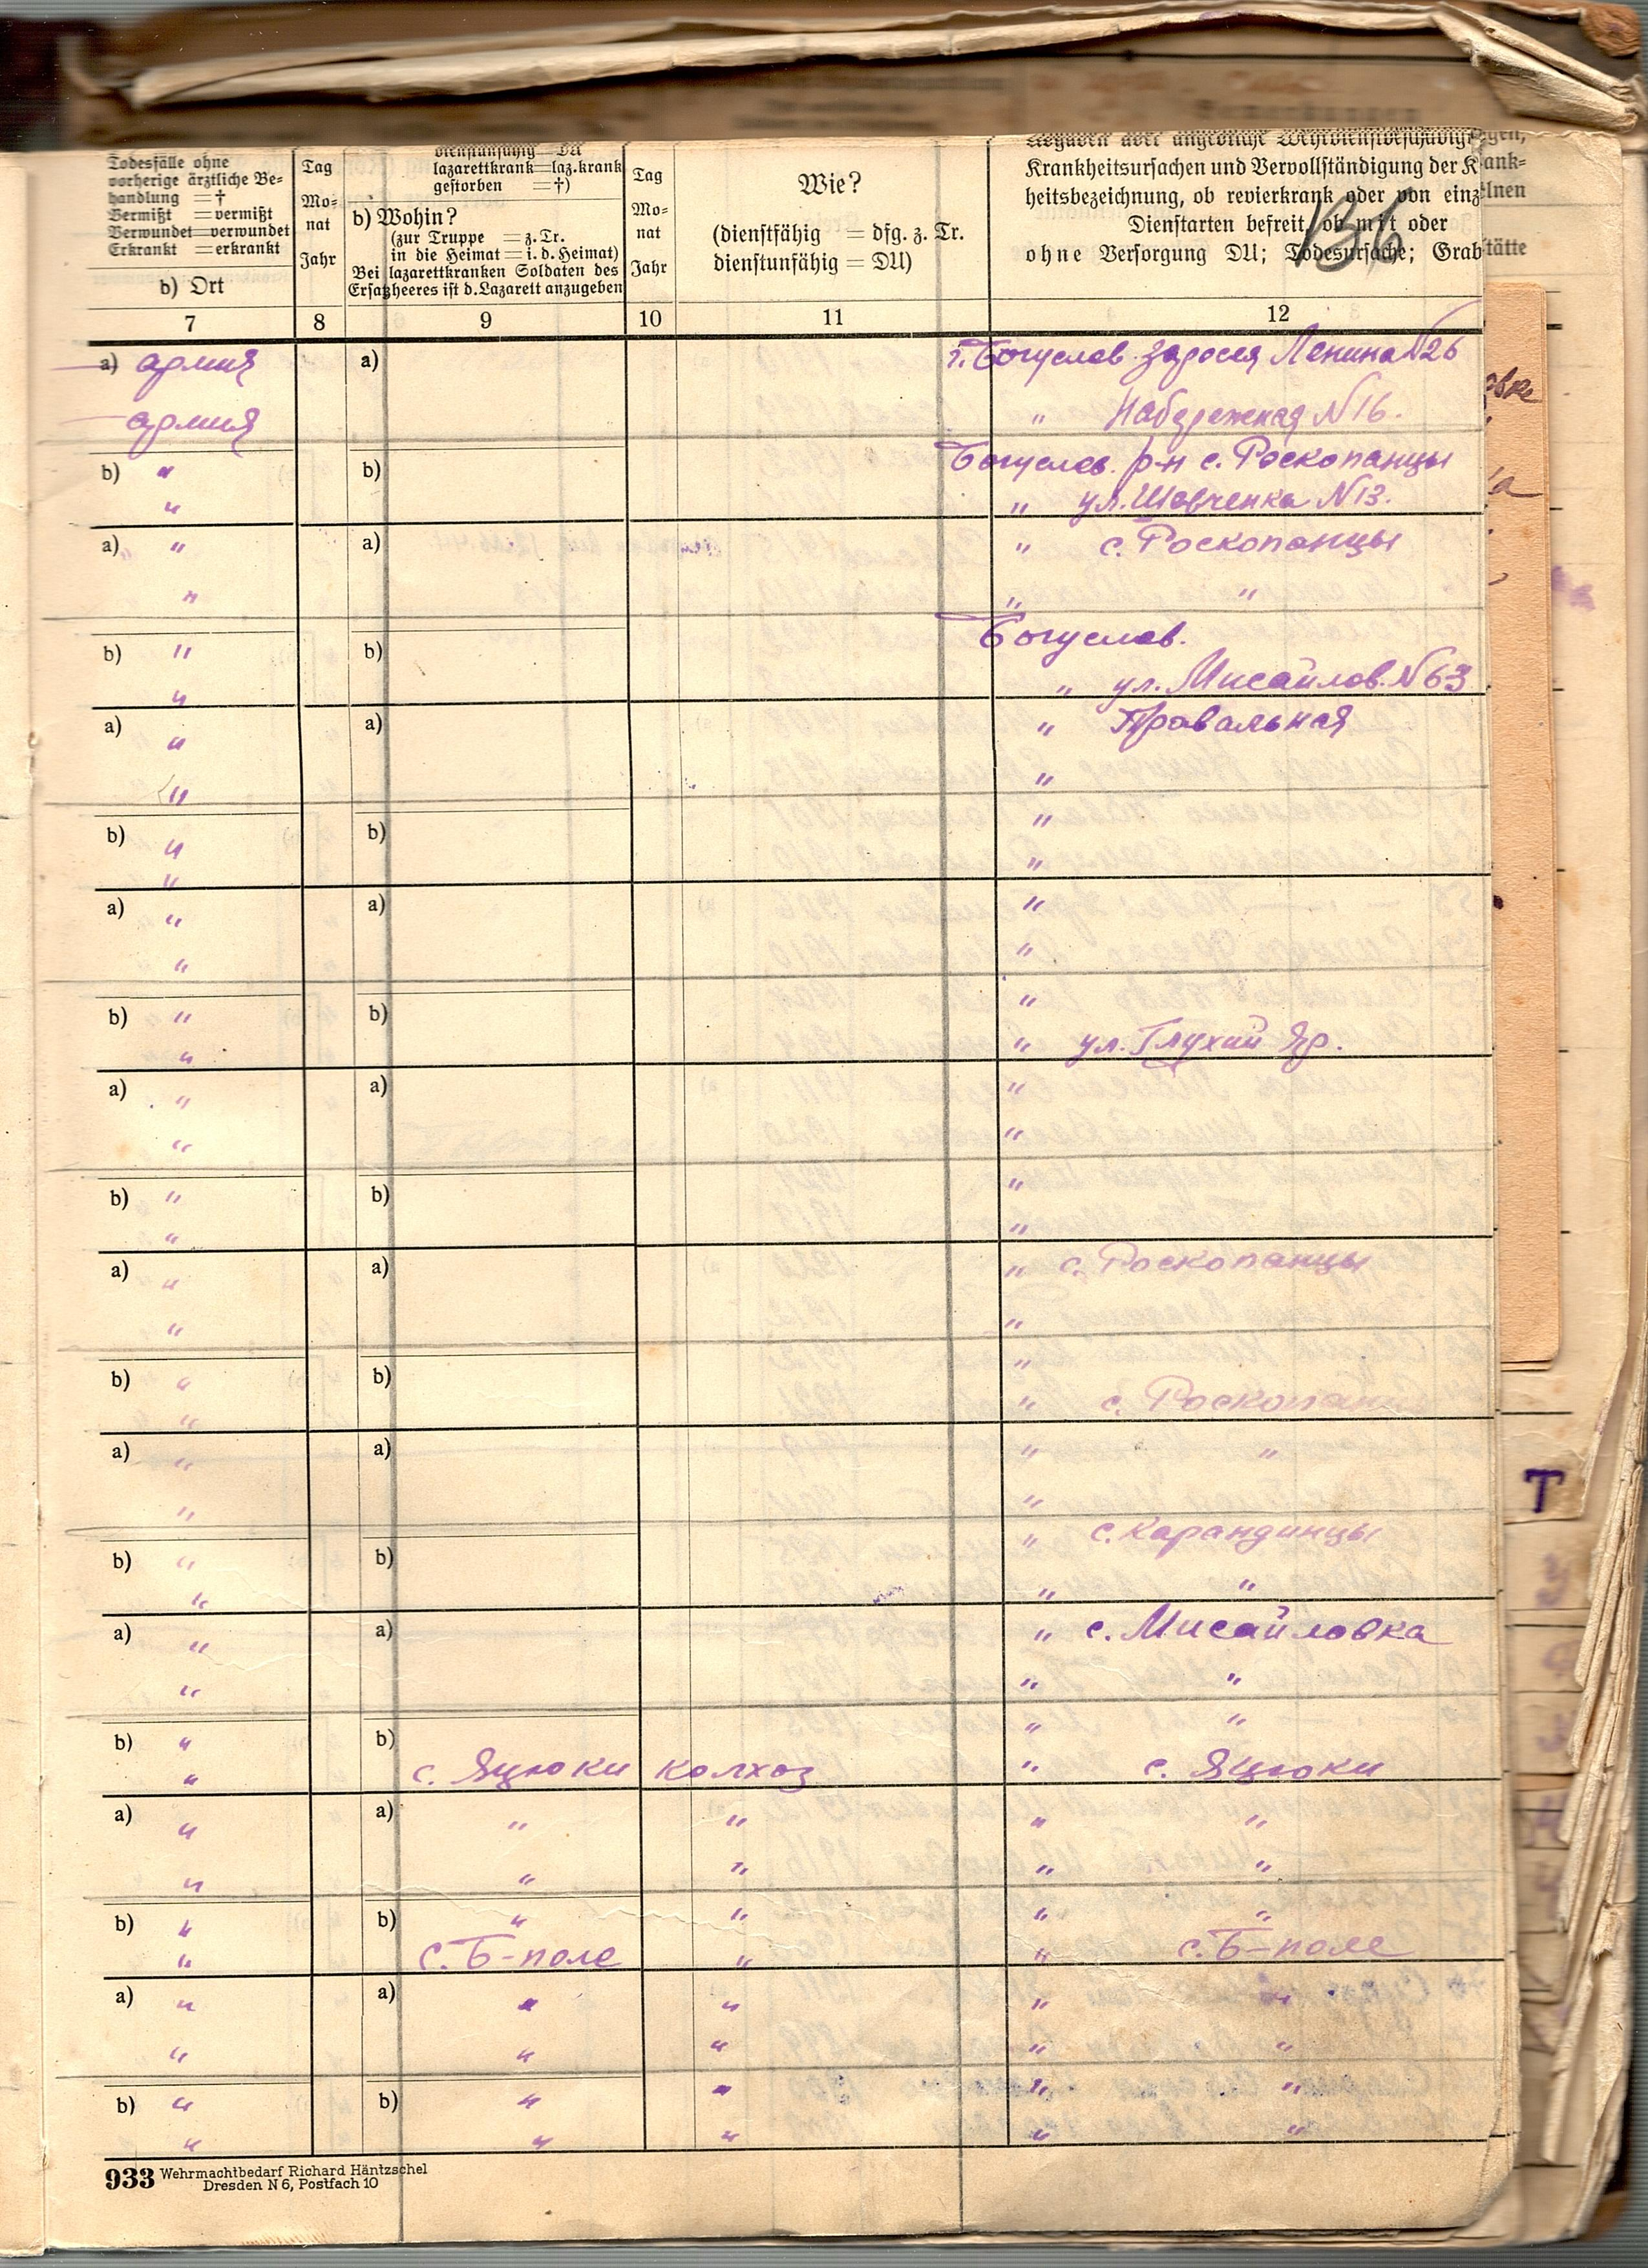 Todesfälle ohne
vorherige ärztliche Be=
handlung = †
Vermißt = vermißt
Verwundet=verwundet
Erkrankt = erkrankt
b) Ort
Tag
Mo=
nat
Jahr
dienstunfähig=DU
lazarettkrank=laz.krank
gestorben = †)
b) Wohin?
(zur Truppe = z. Tr.
in die Heimat = i. d. Heimat)
Bei lazarettkranken Soldaten des
Ersatzheeres ist d. Lazarett anzugeben
Tag
Mo=
nat
Jahr
Wie?
(dienstfähig = dfg. z. Tr.
dienstunfähig = DU)
Angaben über angebliche Wehrdienstbeschädig
Krankheitsursachen und Vervollständigung der K
heitsbezeichnung, ob revierkrank oder von einz
Dienstarten befreit, ob mit oder
ohne Versorgung DU; Todesursache; Grab
136
gen,
ank=
lnen
tätte
7 8 9 10 11 12
a) армия a) г. Богуслав. Заросся Ленина N26
армия " Набережная N16.
b) " b) Богуслав. р-н с. Роскопанцы
" " ул. Шевченка N13.
a) " a) " с. Роскопанцы
" " "
b) " b) Богуслав.
" " ул. Мисайлов. N63
a) " a) " Правальная
" "
b) " b) "
" "
a) " a) "
" "
b) " b) "
" " ул. Глухий Яр.
a) " a) "
" "
b) " b) "
" "
a) " a) " с. Роскопанцы
" "
b) " b) "
" " с. Роскопанцы
a) " a) " "
" "
b) " b) " с. Карандинцы
" " "
a) " a) " с. Мисайловка
" " "
b) " b) " "
" с. Яцюки колхоз " с. Яцюки
a) " a) " " " "
" " " " "
b) " b) " " " "
" с. Б-поле " " с. Б-поле
a) " a) " " " "
" " " " "
b) " b) " " " "
" " " " "
933 Wehrmachtbedarf Richard Häntzschel
Dresden N 6, Postfach 10
Т